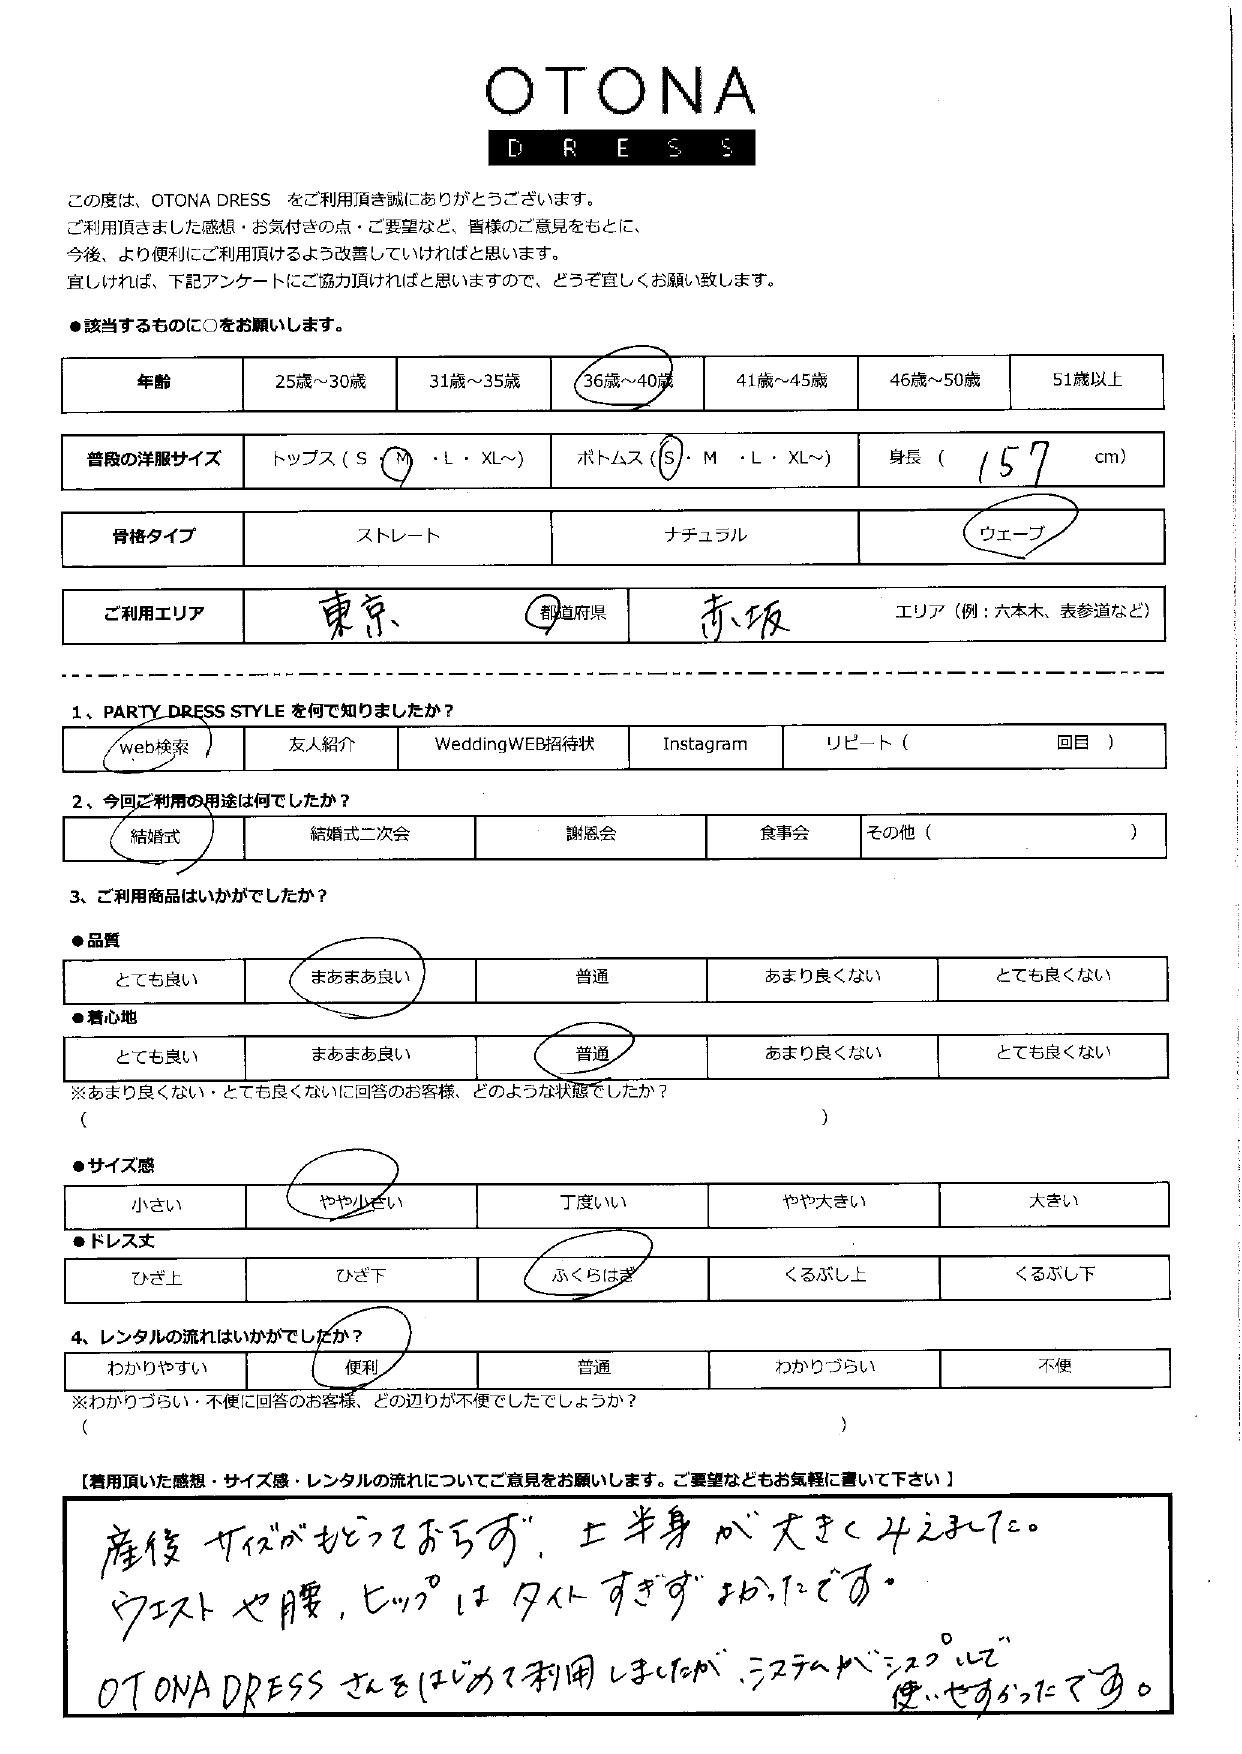 OTONA
DRESS
この度は、OTONA DRESS をご利用頂き誠にありがとうございます。
ご利用頂きました感想・お気付きの点・ご要望など、皆様のご意見をもとに、
今後、より便利にご利用頂けるよう改善していければと思います。
宜しければ、下記アンケートにご協力頂ければと思いますので、どうぞ宜しくお願い致します。
●該当するものに○をお願いします。
年齢 25歳～30歳 31歳～35歳 36歳～40歳 41歳～45歳 46歳～50歳 51歳以上
普段の洋服サイズ トップス ( S ・ M ・ L ・ XL～) ボトムス ( S ・ M ・ L ・ XL～) 身長 ( 157 cm)
骨格タイプ ストレート ナチュラル ウェーブ
ご利用エリア 東京 都道府県 赤坂 エリア（例：六本木、表参道など）
1、PARTY DRESS STYLE を何で知りましたか？
web検索 友人紹介 WeddingWEB招待状 Instagram リピート（ 回目 ）
2、今回ご利用の用途は何でしたか？
結婚式 結婚式二次会 謝恩会 食事会 その他（ ）
3、ご利用商品はいかがでしたか？
●品質
とても良い まあまあ良い 普通 あまり良くない とても良くない
●着心地
とても良い まあまあ良い 普通 あまり良くない とても良くない
※あまり良くない・とても良くないに回答のお客様、どのような状態でしたか？
（ ）
●サイズ感
小さい やや小さい 丁度いい やや大きい 大きい
●ドレス丈
ひざ上 ひざ下 ふくらはぎ くるぶし上 くるぶし下
4、レンタルの流れはいかがでしたか？
わかりやすい 便利 普通 わかりづらい 不便
※わかりづらい・不便に回答のお客様、どの辺りが不便でしたでしょうか？
（ ）
【着用頂いた感想・サイズ感・レンタルの流れについてご意見をお願いします。ご要望などもお気軽に書いて下さい】
産後 サイズがもどっておらず、上半身が大きくみえました。
ウエストや腰、ヒップはタイトすぎずよかったです。
OTONA DRESSさんをはじめて利用しましたが、システムがシンプルで
使いやすかったです。